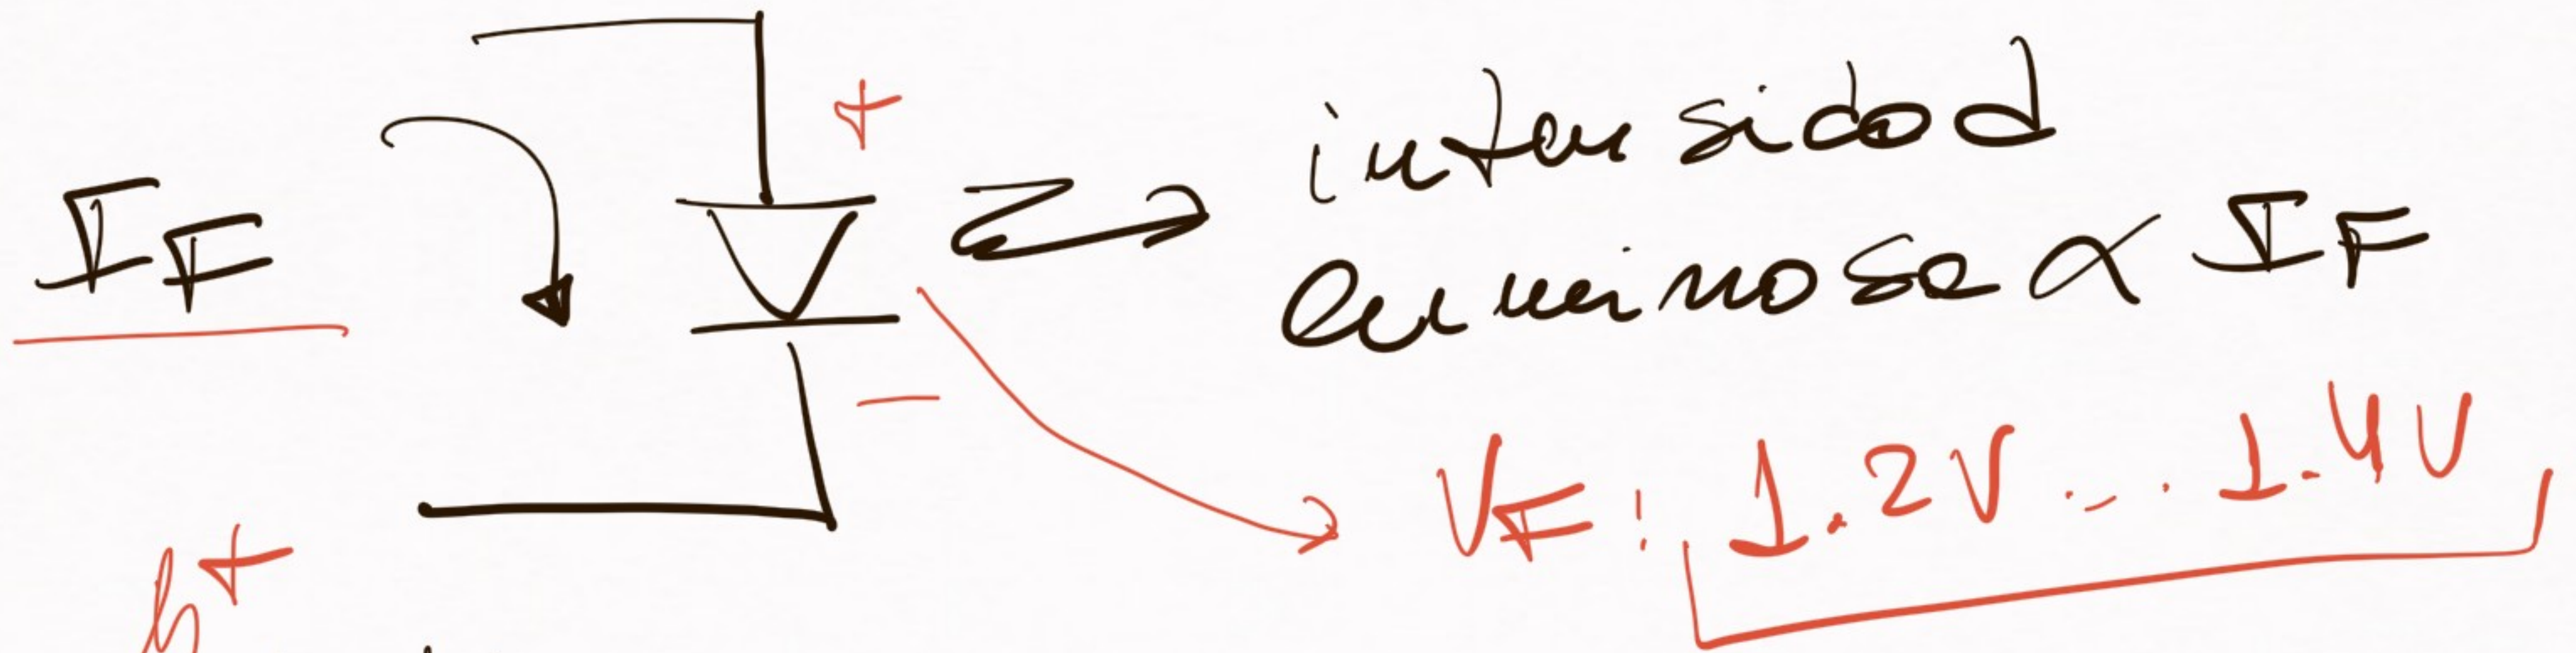 +
intensidad
I_F
luminosa ∝ I_F
−
V_F: 1.2V ... 1.4V
h+